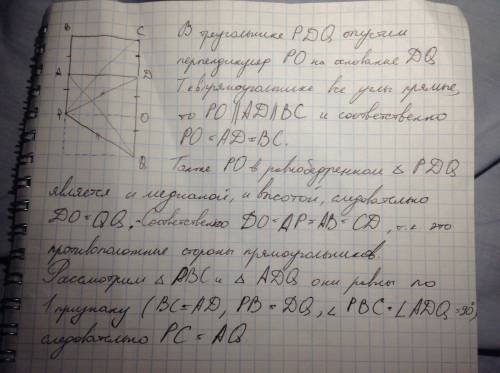 B
C
A
D
P
O
Q
В треугольнике PDQ опустим
перпендикуляр PO на основание DQ
Т.к в прямоугольнике все углы прямые,
то PO||AD||BC и соответственно
PO=AD=BC.
Также PO в равнобедренном △ PDQ
является и медианой, и высотой, следовательно
DO=QQ, Соответственно DO=AP=AB=CD, т.к. это
противоположные стороны прямоугольников.
Рассмотрим △ PBC и △ ADQ они равны по
1 признаку (BC=AD, PB=DQ, ∠PBC=∠ADQ=90°)
следовательно PC=AQ